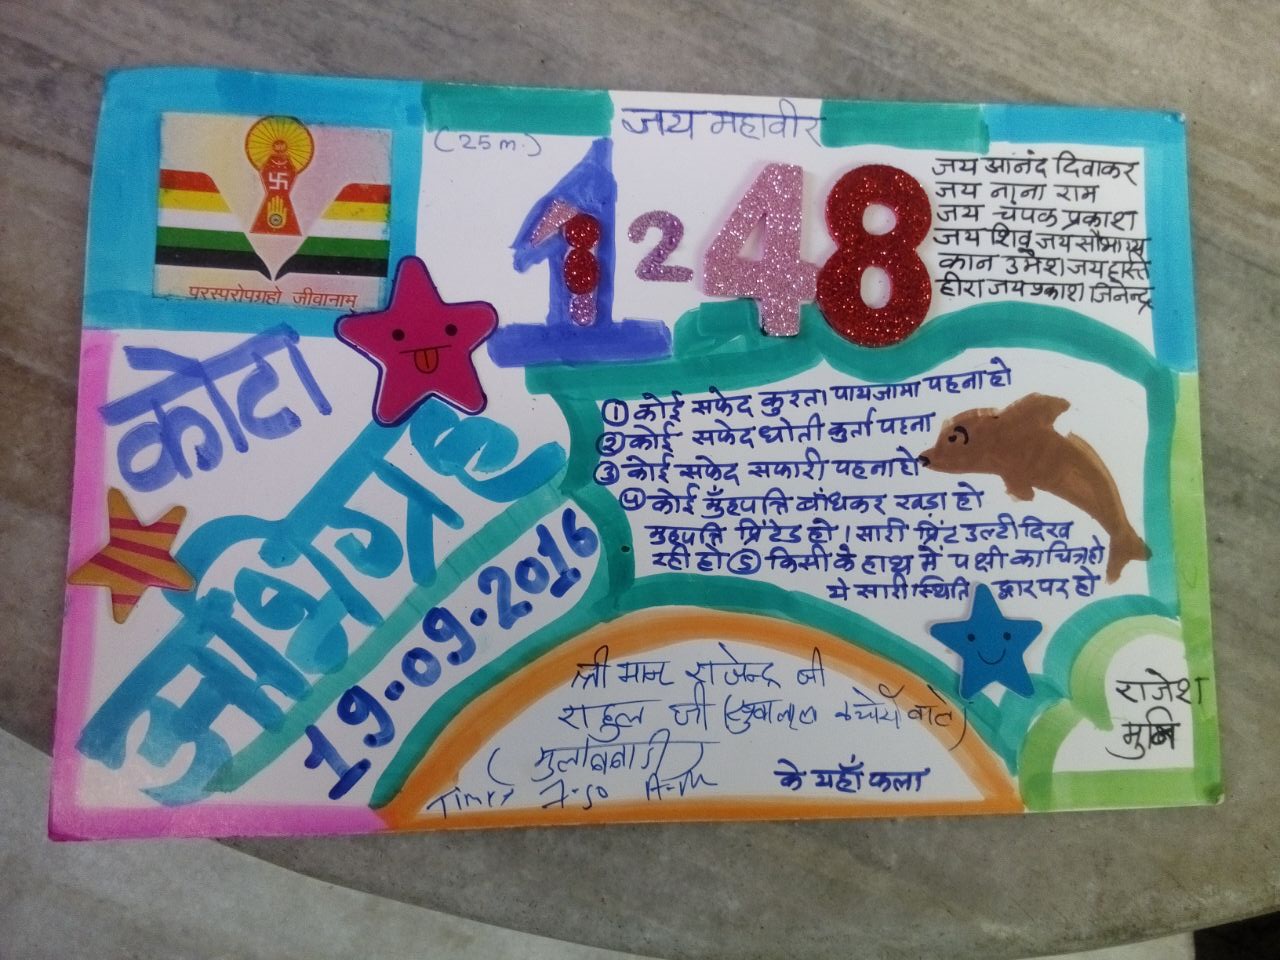 जय महावीर
(25 m.)
1 2 4 8
जय आनंद दिवाकर
जय नाना राम
जय चंपक प्रकाश
जय शिव जय सौभाग्य
कान उमेश जय हस्ति
हीरा जय प्रकाश जिनेन्द्र
परस्परोपग्रहो जीवानाम्
कोटा
अभिग्रह
19.09.2016
① कोई सफेद कुरता पायजामा पहना हो
② कोई सफेद धोती कुर्ता पहना
③ कोई सफेद सफारी पहना हो
④ कोई मुँहपत्ति बांधकर खड़ा हो
मुहपत्ति प्रिंटेड हो । सारी प्रिंट उल्टी दिख
रही हो ⑤ किसी के हाथ में पक्षी का चित्र हो
ये सारी स्थिति द्वार पर हो
श्री मान राजेन्द्र जी
राहुल जी ( कचोरी वाले)
(गुलाबबाड़ी
Time 7-50
के यहाँ फला
राजेश
मुनि